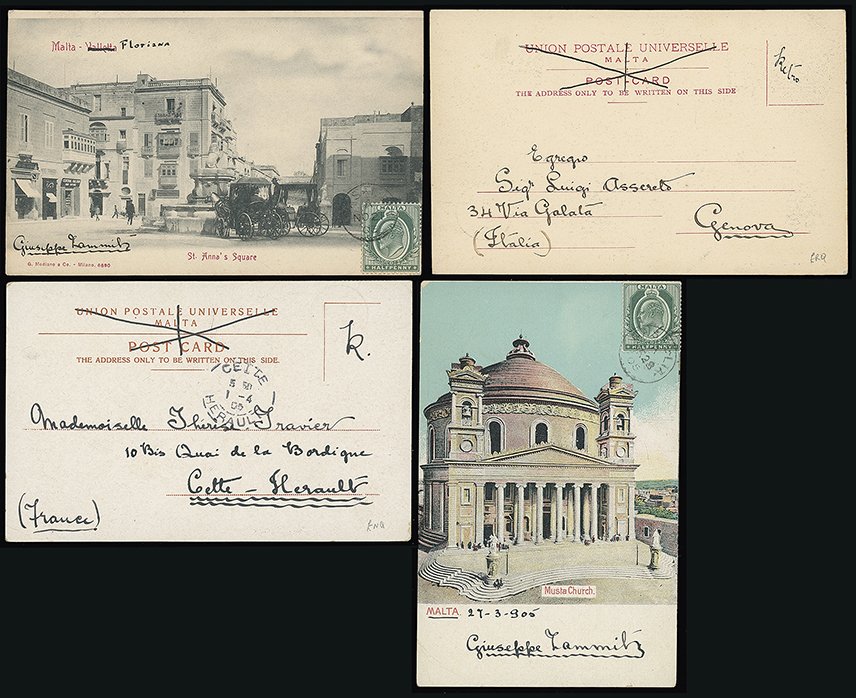 Malta - Valletta Floriana
Giuseppe Zammitz
St. Anna's Square
G. Modiano & Co. - Milano, 6680
MALTA
HALFPENNY
UNION POSTALE UNIVERSELLE
MALTA
POST-CARD
THE ADDRESS ONLY TO BE WRITTEN ON THIS SIDE
Retro
Egregio
Sigr Luigi Assereto
34 Via Galata
Genova
(Italia)
UNION POSTALE UNIVERSELLE
MALTA
POST CARD
THE ADDRESS ONLY TO BE WRITTEN ON THIS SIDE.
R.
CETTE
1 - 4
HERAULT
Mademoiselle Thérèse Travier
10 Bis Quai de la Bordique
Cette - Herault
(France)
MALTA
HALFPENNY
Musta Church.
MALTA. 27-3-905
Giuseppe Zammitz